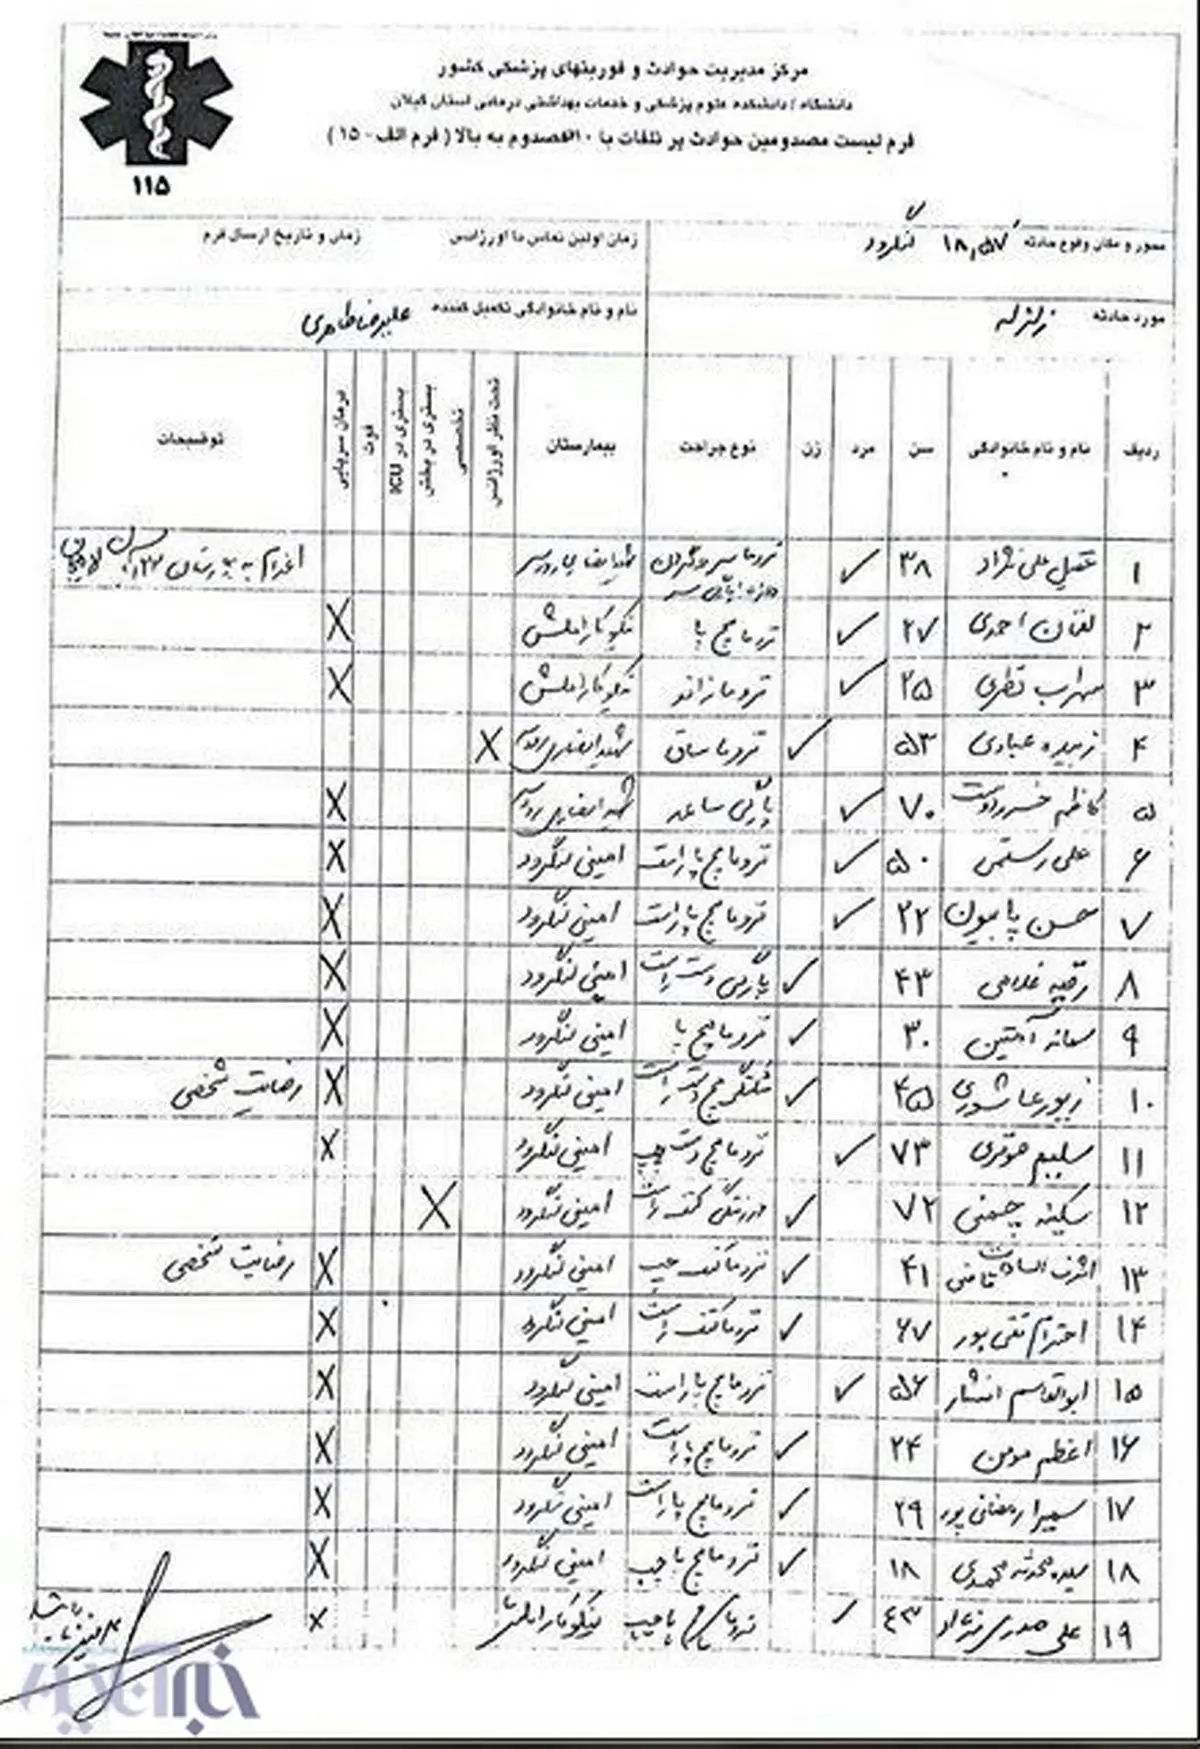 مرکز مدیریت حوادث و فوریتهای پزشکی کشور
دانشگاه / دانشکده علوم پزشکی و خدمات بهداشتی درمانی استان گیلان
فرم لیست مصدومین حوادث پر تلفات با ۱۰ مصدوم به بالا ( فرم الف - ۱۵ )
۱۱۵
محور و مکان وقوع حادثه ۱۸,۵۷ لنگرود
زمان اولین تماس با اورژانس
زمان و تاریخ ارسال فرم
مورد حادثه زلزله
نام و نام خانوادگی تکمیل کننده علیرضا طاهری
ردیف نام و نام خانوادگی سن مرد زن نوع جراحت بیمارستان تحت نظر اورژانس بستری در بخش تخصصی بستری در ICU فوت درمان سرپایی توضیحات
۱ علی نژاد ۳۸ ✓ تروما سر
۲ لقمان احمدی ۲۷ ✓ تروما مچ پا نیکوکار املش X
۳ سهراب نظری ۲۵ ✓ تروما زانو نیکوکار املش X
۴ زبیده عبادی ۵۳ ✓ تروما ساق شهید انصاری رودسر X
۵ کاظم خسرودوست ۷۰ ✓ پارگی ساعد شهید انصاری رودسر X
۶ علی رستمی ۵۰ ✓ تروما مچ پا راست امینی لنگرود X
۷ حسن پاپیون ۲۲ ✓ تروما مچ پا راست امینی لنگرود X
۸ رقیه غلامی ۴۳ ✓ پارگی دست راست امینی لنگرود X
۹ سمانه آبتین ۳۰ ✓ تروما مچ پا امینی لنگرود X
۱۰ زیور عاشوری ۴۵ ✓ شکستگی مچ دست راست امینی لنگرود X رضایت شخصی
۱۱ سلیم ۷۳ ✓ تروما مچ دست چپ امینی لنگرود X
۱۲ سکینه چمنی ۷۲ ✓ دررفتگی کتف راست امینی لنگرود X
۱۳ اشرف السادات ۴۱ ✓ تروما کتف چپ امینی لنگرود X رضایت شخصی
۱۴ احترام تقی پور ۶۷ ✓ تروما کتف راست امینی لنگرود X
۱۵ ابوالقاسم افشار ۵۶ ✓ تروما مچ پا راست امینی لنگرود X
۱۶ اعظم مومن ۲۴ ✓ تروما مچ پا راست امینی لنگرود X
۱۷ سمیرا رمضانی پور ۲۹ ✓ تروما مچ پا راست امینی لنگرود X
۱۸ سیده محدثه محمدی ۱۸ ✓ تروما مچ پا چپ امینی لنگرود X
۱۹ علی ۴۳ ✓ تروما مچ پا چپ نیکوکار املش X
خبرآنلاین